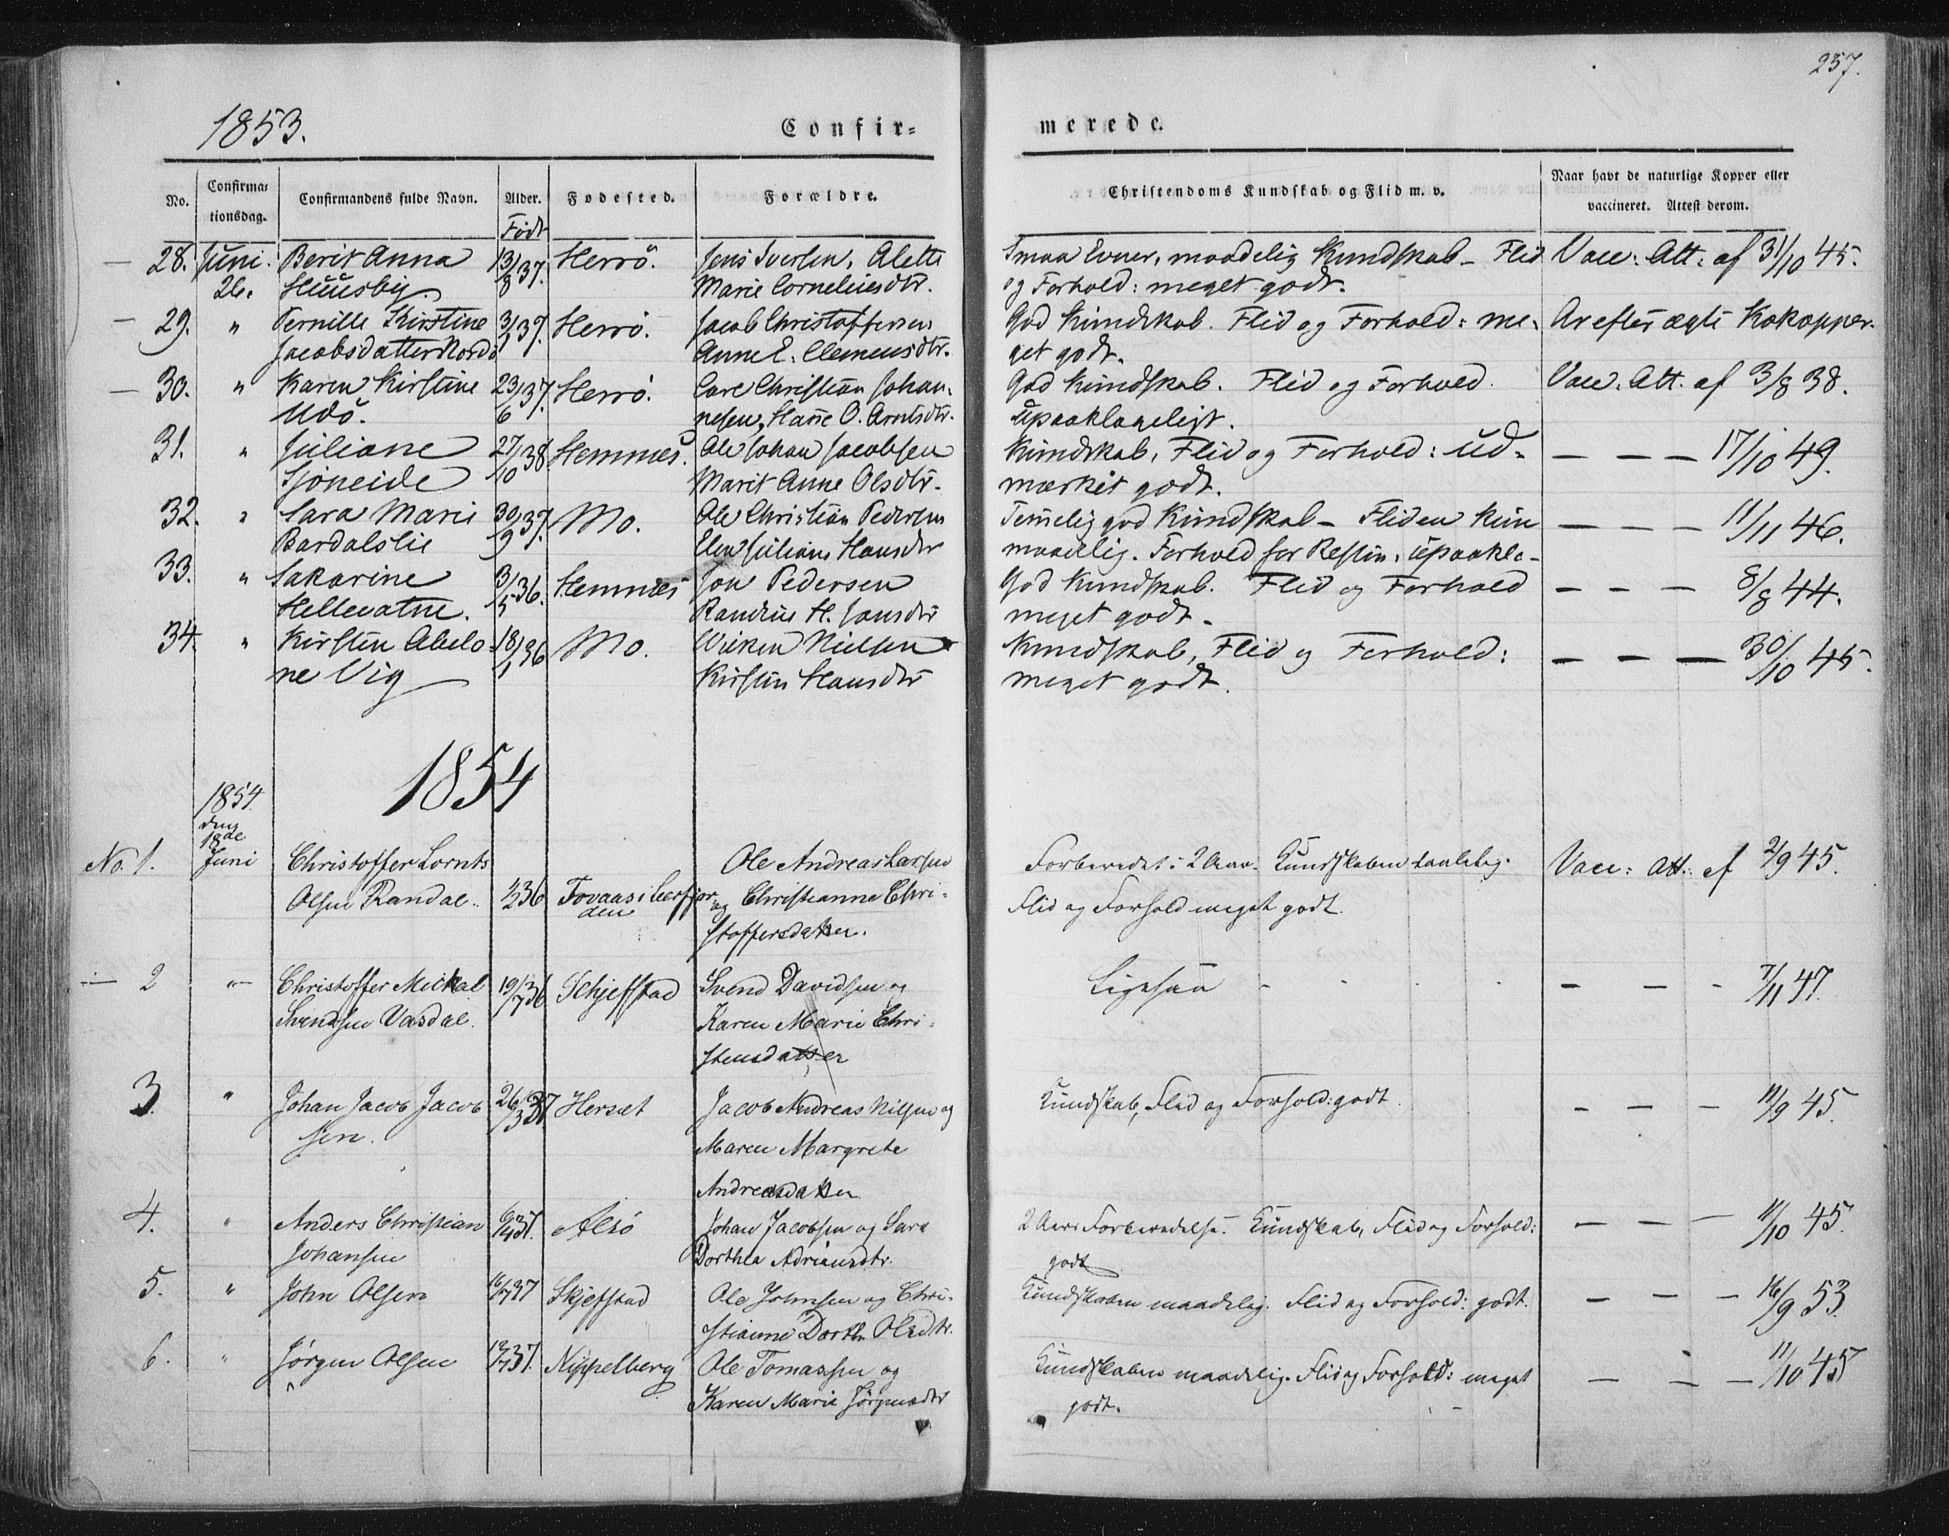 257.
1853.
Confir=
merede.
No.
Confirma=
tionsdag.
Confirmandens fulde Navn.
Alder.
Født
Fødested.
Forældre.
Christendoms Kundskab og Flid m. v.
Naar havt de naturlige Kopper eller
vaccineret. Attest derom.
28. Juni Berit Anna 13/8 37. Herrö. Jens Iversen, Alette Smaa Evner, maadelig Kundskab – Flid Vacc: Att: af 31/10 45.
26. Huusby. Marie Corneliusdtr. og Forhold: meget godt.
29. " Pernille Kirstine 3/1 37. Herrö. Jacob Christoffersen God Kundskab. Flid og Forhold: me- Ar efter ægte Kokopper.
Jacobsdatter Anne E. Clemensdtr. get godt.
30. " Karen Kirstine 23/6 37. Herrö. Carl Christian Johan- God Kundskab. Flid og Forhold Vacc. Att. af 3/8 38.
Udö. nesen, Hane O. Arntsdtr. upaaklageligt.
31. " Juliane 27/10 38. Hemnes. Ole Johan Jacobsen Kundskab, Flid og Forhold: ud- — — — 17/10 49.
Sjöneide Marit Anne Olsdtr. mærket godt.
32. " Sara Marie 30/9 37. Mo. Ole Christian Pedersen Temelig god Kundskab – Fliden kun — — — 11/11 46.
Bardalslie Elen Juliane Hansdtr maadelig. Forhold for Resten, upaakla-
33. " Sakarine 3/5 36. Hemnes Jon Pedersen God Kundskab. Flid og Forhold — — — 8/8 44.
Hellevatne. H. Jonsdtr meget godt.
34. " Kirsten Abelo- 18/1 36 Mo. Nielsen Kundskab, Flid og Forhold: — — — 30/10 45.
ne Vig Kirsten Hansdtr meget godt.
1854
1854
den
18de
No. 1. Juni Christoffer Lornts Ole Andreas Larsen Forberedet i 2 Aar. Kundskaben taalelig. Vacc: Att: af 2/9 45.
Olsen Randal. 1/2 36 og Christianne Chri- Flid og Forhold meget godt.
stoffersdatter.
— 2 " Christoffer Mickal 19/7 36 Schjefstad Svend Davidsen og Ligesaa - - - — — - 7/11 47.
Svendsen Vasdal. Karen Marie Chri-
stensdatter
3. " Johan Jacob Jacob Herset Jacob Andreas Nilsen og Kundskab, Flid og Forhold: godt. — — — 11/9 45.
sen. Maren Margrete
Andreasdatter
4. " Anders Christian 6/4 37. Alsö Johan Jacobsen og Sara 2 Aars Forberedelse. Kundskab, Flid og Forhold: — — — 11/10 45.
Johansen Dorthea Adriansdtr. godt
5. " John Olsen 16/7 37 Skjefstad Ole Johnsen og Chri- Kundskaben maadelig. Flid og Forhold: godt. — — — 16/9 53.
stianne Dorth. Olsdtr.
6. " Jørgen Olsen 37. Nippelberg Ole Tomassen og Kundskaben maadelig. Flid og Forhold: meget — — — 11/10 45
Karen Marie Jørgensdtr godt.